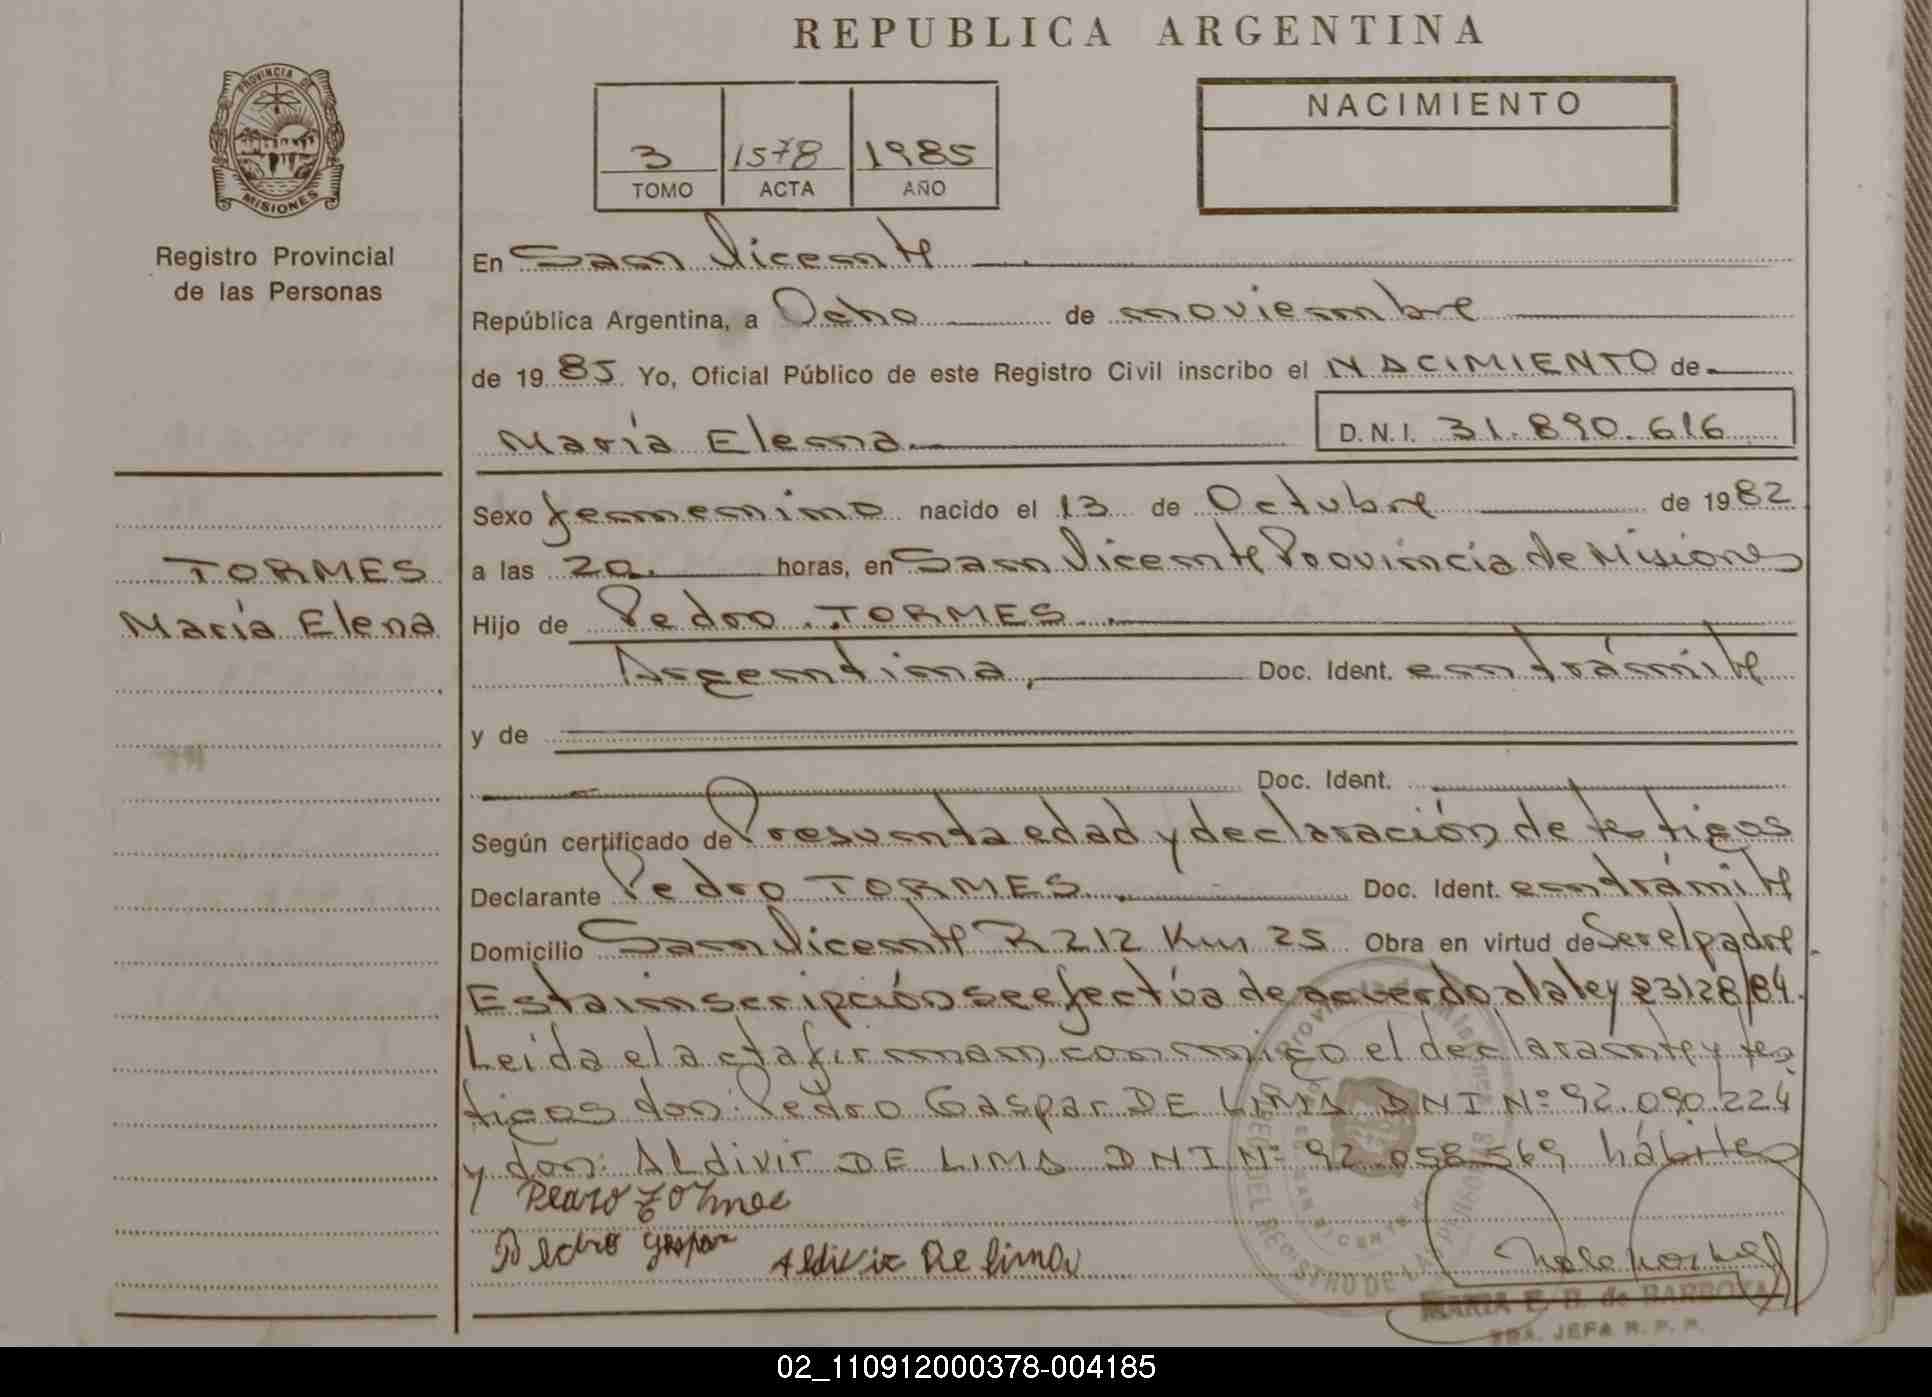 REPUBLICA ARGENTINA
PROVINCIA DE
MISIONES
Registro Provincial
de las Personas
3 1578 1985
TOMO ACTA AÑO
NACIMIENTO
En San Vicente
República Argentina, a Ocho de noviembre
de 19 85 Yo, Oficial Público de este Registro Civil inscribo el NACIMIENTO de
María Elena D.N.I. 31.890.616
Sexo femenino nacido el 13 de Octubre de 1982
a las 20 horas, en San Vicente Provincia de Misiones
TORMES
María Elena
Hijo de Pedro TORMES
Argentina, Doc. Ident. en trámite
y de
Doc. Ident.
Según certificado de Presunta edad y declaración de testigos
Declarante Pedro TORMES Doc. Ident. en trámite
Domicilio San Vicente R 212 Km 25 Obra en virtud de Ser el padre.
Esta inscripción se efectúa de acuerdo a la ley 23128/84.
Leida el acta firman conmigo el declarante y tes
tigos don: Pedro Gaspar DE LIMA DNI Nº 92.090.224
y don: ALdivir DE LIMA DNI Nº 92.058.569 hábiles
Pedro Tormes
Pedro Gaspar Aldivir De Lima
MARIA E. B. de BARBOZA
JEFA R. P. P.
02_110912000378-004185